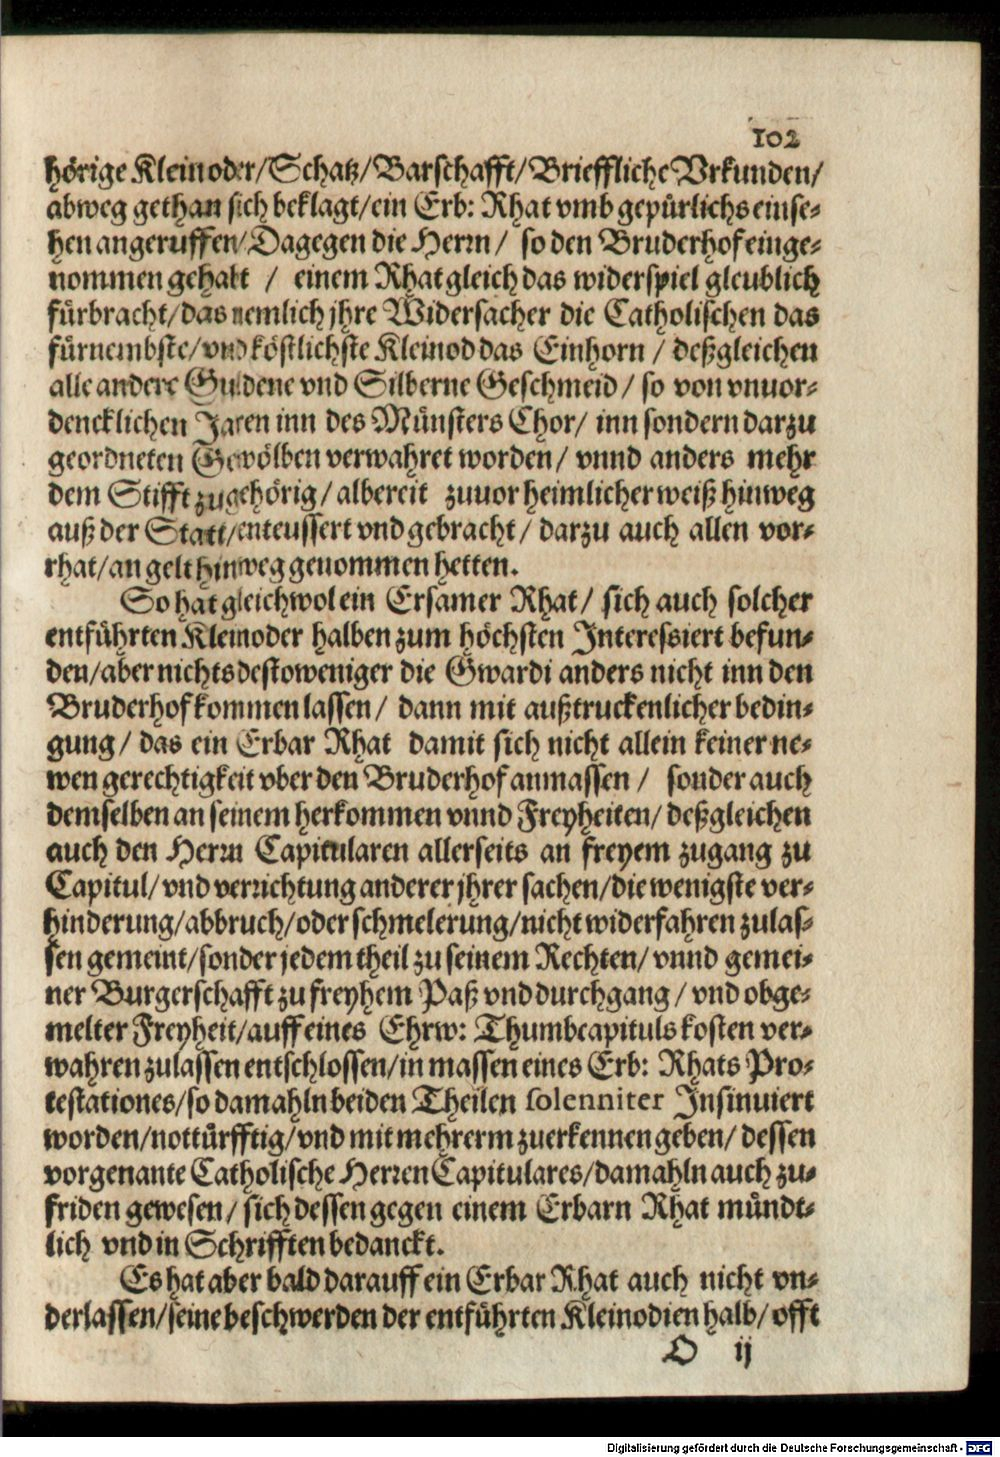 102
hörige Kleinoder/Schatz/Barschafft/Brieffliche Vrkunden/
abweg gethan sich beklagt/ein Erb: Rhat vmb gepürlichs einse-
hen angeruffen/Dagegen die Herrn/ so den Bruderhof einge-
nommen gehabt / einem Rhat gleich das widerspiel gleublich
fürbracht/das nemlich jhre Widersacher die Catholischen das
fürnembste/vnd köstlichste Kleinod das Einhorn / deßgleichen
alle andere Guldene vnd Silberne Geschmeid/ so von vnuor-
dencklichen Jaren inn des Münsters Chor/ inn sondern darzu
geordneten Gewölben verwahret worden/ vnnd anders mehr
dem Stifft zugehörig/ albereit zuuor heimlicher weiß hinweg
auß der Statt/enteussert vnd gebracht/ darzu auch allen vor-
rhat/an gelt hinweg genommen hetten.
So hat gleichwol ein Ersamer Rhat/ sich auch solcher
entführten Kleinoder halben zum höchsten Interessiert befun-
den/aber nichts destoweniger die Gwardi anders nicht inn den
Bruderhof kommen lassen/ dann mit außtruckenlicher bedin-
gung/ das ein Erbar Rhat damit sich nicht allein keiner ne-
wen gerechtigkeit vber den Bruderhof anmassen / sonder auch
demselben an seinem herkommen vnnd Freyheiten/ deßgleichen
auch den Herrn Capitularen allerseits an freyem zugang zu
Capitul/vnd verrichtung anderer jhrer sachen/die wenigste ver-
hinderung/abbruch/oder schmelerung/nicht widerfahren zulas-
sen gemeint/sonder jedem theil zu seinem Rechten/ vnnd gemei-
ner Burgerschafft zu freyhem Paß vnd durchgang / vnd obge-
melter Freyheit/auff eines Ehrw: Thumbcapituls kosten ver-
wahren zulassen entschlossen/in massen eines Erb: Rhats Pro-
testationes/so damahln beiden Theilen solenniter Insinuiert
worden/nottürfftig/vnd mit mehrerm zuerkennen geben/ dessen
vorgenante Catholische Herren Capitulares/damahln auch zu-
friden gewesen/ sich dessen gegen einem Erbarn Rhat mündt-
lich vnd in Schrifften bedanckt.
Es hat aber bald darauff ein Erbar Rhat auch nicht vn-
derlassen/seine beschwerden der entführten Kleinodien halb/ offt
O ij
Digitalisierung gefördert durch die Deutsche Forschungsgemeinschaft - DFG